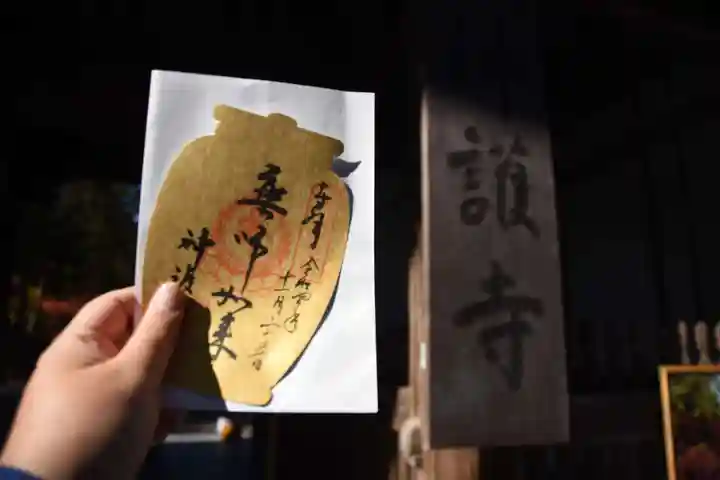 奉拝
令和四年
十一月二十五日
薬師如来
神護
護寺